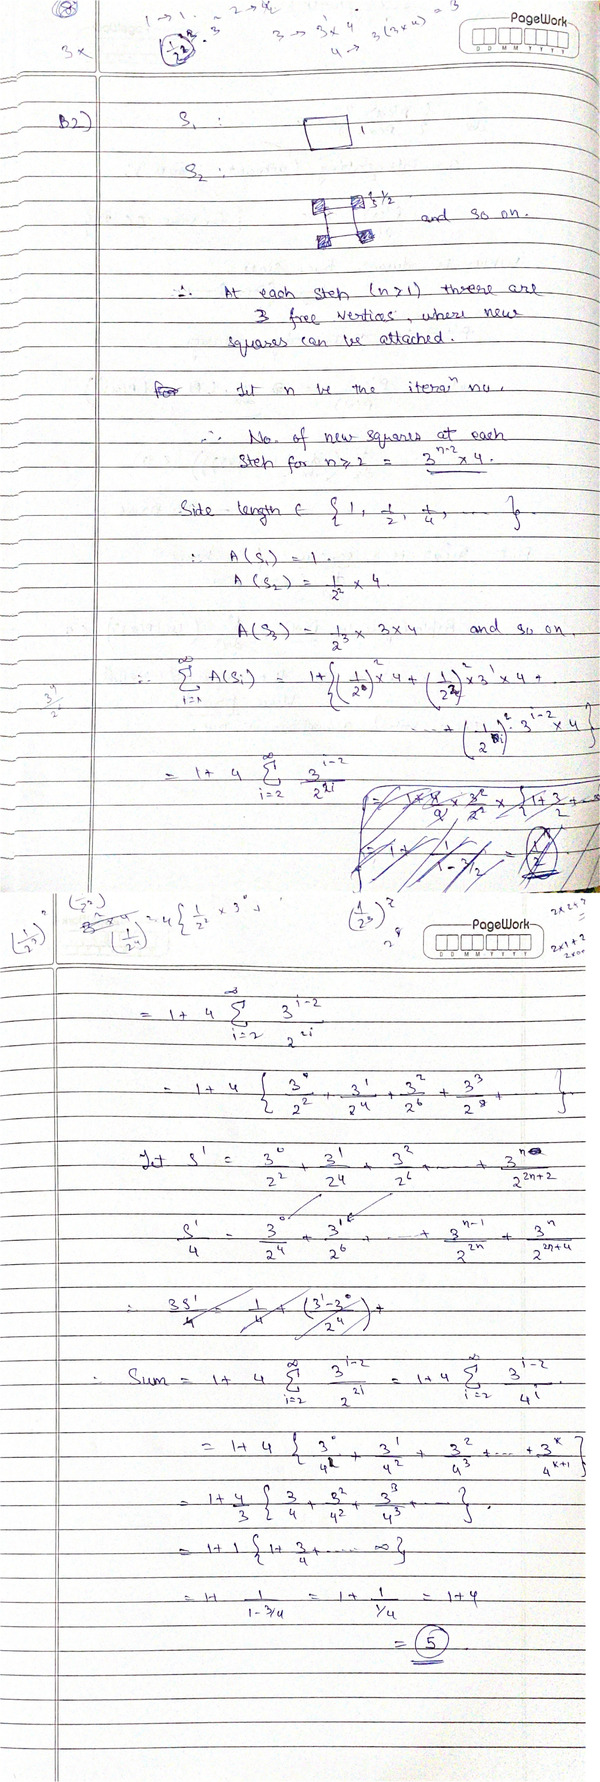 1 → 1. 2 → 4
3 → 3 × 4 = 3
4 → 3(3×4)
3x
PageWork
D D M M Y Y Y Y
B2) S₁ : 1
S₂ :
1/2
and so on.
∴ At each step (n>1) threre are
3 free vertices, where new
squares can be attached.
Let n be the iteraⁿ no.
∴ No. of new squares at each
step for n≥2 = 3ⁿ⁻² × 4.
Side length ∈ { 1, 1/2, 1/4, ..... }.
∴ A(S₁) = 1.
A(S₂) = 1/2² × 4.
A(S₃) = 1/2³ × 3 × 4 and so on.
∴ ∑ A(Sᵢ) = 1 + { (1/2)² × 4 + (1/2²)² × 3¹ × 4 + ..
... + (1/2ⁱ)² · 3ⁱ⁻² × 4 }
= 1 + 4 ∑_{i=2}^{∞} 3ⁱ⁻²/2²ⁱ
PageWork
D D M M Y Y Y Y
= 1 + 4 ∑_{i=2}^{∞} 3ⁱ⁻²/2²ⁱ
= 1 + 4 { 3⁰/2² + 3¹/2⁴ + 3²/2⁶ + 3³/2⁸ + ..... }
Let S' = 3⁰/2² + 3¹/2⁴ + 3²/2⁶ + ..... + 3ⁿ/2²ⁿ⁺²
S'/4 = 3⁰/2⁴ + 3¹/2⁶ + ... + 3ⁿ⁻¹/2²ⁿ + 3ⁿ/2²ⁿ⁺⁴
∴ 3S'/4 = 1/4 + (3¹-3⁰)/2⁴ +
∴ Sum = 1 + 4 ∑_{i=2}^{∞} 3ⁱ⁻²/2²ⁱ = 1 + 4 ∑_{i=2}^{∞} 3ⁱ⁻²/4ⁱ.
= 1 + 4 { 3⁰/4 + 3¹/4² + 3²/4³ + ... + 3ᵏ/4ᵏ⁺¹ }
= 1 + 4/3 { 3/4 + 3²/4² + 3³/4³ + ..... }.
= 1 + 1 { 1 + 3/4 + ..... ∞ }
= 1 + 1/(1 - 3/4) = 1 + 1/(1/4) = 1 + 4
= 5.